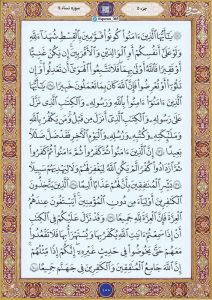 سوره نساء ٤
جزء ٥
۞ يَٰٓأَيُّهَا ٱلَّذِينَ ءَامَنُوا۟ كُونُوا۟ قَوَّٰمِينَ بِٱلْقِسْطِ شُهَدَآءَ لِلَّهِ
وَلَوْ عَلَىٰٓ أَنفُسِكُمْ أَوِ ٱلْوَٰلِدَيْنِ وَٱلْأَقْرَبِينَ ۚ إِن يَكُنْ غَنِيًّا
أَوْ فَقِيرًا فَٱللَّهُ أَوْلَىٰ بِهِمَا ۖ فَلَا تَتَّبِعُوا۟ ٱلْهَوَىٰٓ أَن تَعْدِلُوا۟ ۚ وَإِن
تَلْوُۥٓا۟ أَوْ تُعْرِضُوا۟ فَإِنَّ ٱللَّهَ كَانَ بِمَا تَعْمَلُونَ خَبِيرًا ١٣٥ يَٰٓأَيُّهَا
ٱلَّذِينَ ءَامَنُوٓا۟ ءَامِنُوا۟ بِٱللَّهِ وَرَسُولِهِۦ وَٱلْكِتَٰبِ ٱلَّذِى نَزَّلَ
عَلَىٰ رَسُولِهِۦ وَٱلْكِتَٰبِ ٱلَّذِىٓ أَنزَلَ مِن قَبْلُ ۚ وَمَن يَكْفُرْ بِٱللَّهِ
وَمَلَٰٓئِكَتِهِۦ وَكُتُبِهِۦ وَرُسُلِهِۦ وَٱلْيَوْمِ ٱلْءَاخِرِ فَقَدْ ضَلَّ ضَلَٰلًۢا
بَعِيدًا ١٣٦ إِنَّ ٱلَّذِينَ ءَامَنُوا۟ ثُمَّ كَفَرُوا۟ ثُمَّ ءَامَنُوا۟ ثُمَّ كَفَرُوا۟
ثُمَّ ٱزْدَادُوا۟ كُفْرًا لَّمْ يَكُنِ ٱللَّهُ لِيَغْفِرَ لَهُمْ وَلَا لِيَهْدِيَهُمْ سَبِيلًۢا
١٣٧ بَشِّرِ ٱلْمُنَٰفِقِينَ بِأَنَّ لَهُمْ عَذَابًا أَلِيمًا ١٣٨ ٱلَّذِينَ يَتَّخِذُونَ
ٱلْكَٰفِرِينَ أَوْلِيَآءَ مِن دُونِ ٱلْمُؤْمِنِينَ ۚ أَيَبْتَغُونَ عِندَهُمُ
ٱلْعِزَّةَ فَإِنَّ ٱلْعِزَّةَ لِلَّهِ جَمِيعًا ١٣٩ وَقَدْ نَزَّلَ عَلَيْكُمْ فِى ٱلْكِتَٰبِ
أَنْ إِذَا سَمِعْتُمْ ءَايَٰتِ ٱللَّهِ يُكْفَرُ بِهَا وَيُسْتَهْزَأُ بِهَا فَلَا تَقْعُدُوا۟
مَعَهُمْ حَتَّىٰ يَخُوضُوا۟ فِى حَدِيثٍ غَيْرِهِۦٓ ۚ إِنَّكُمْ إِذًا مِّثْلُهُمْ ۗ
إِنَّ ٱللَّهَ جَامِعُ ٱلْمُنَٰفِقِينَ وَٱلْكَٰفِرِينَ فِى جَهَنَّمَ جَمِيعًا ١٤٠
١٠٠